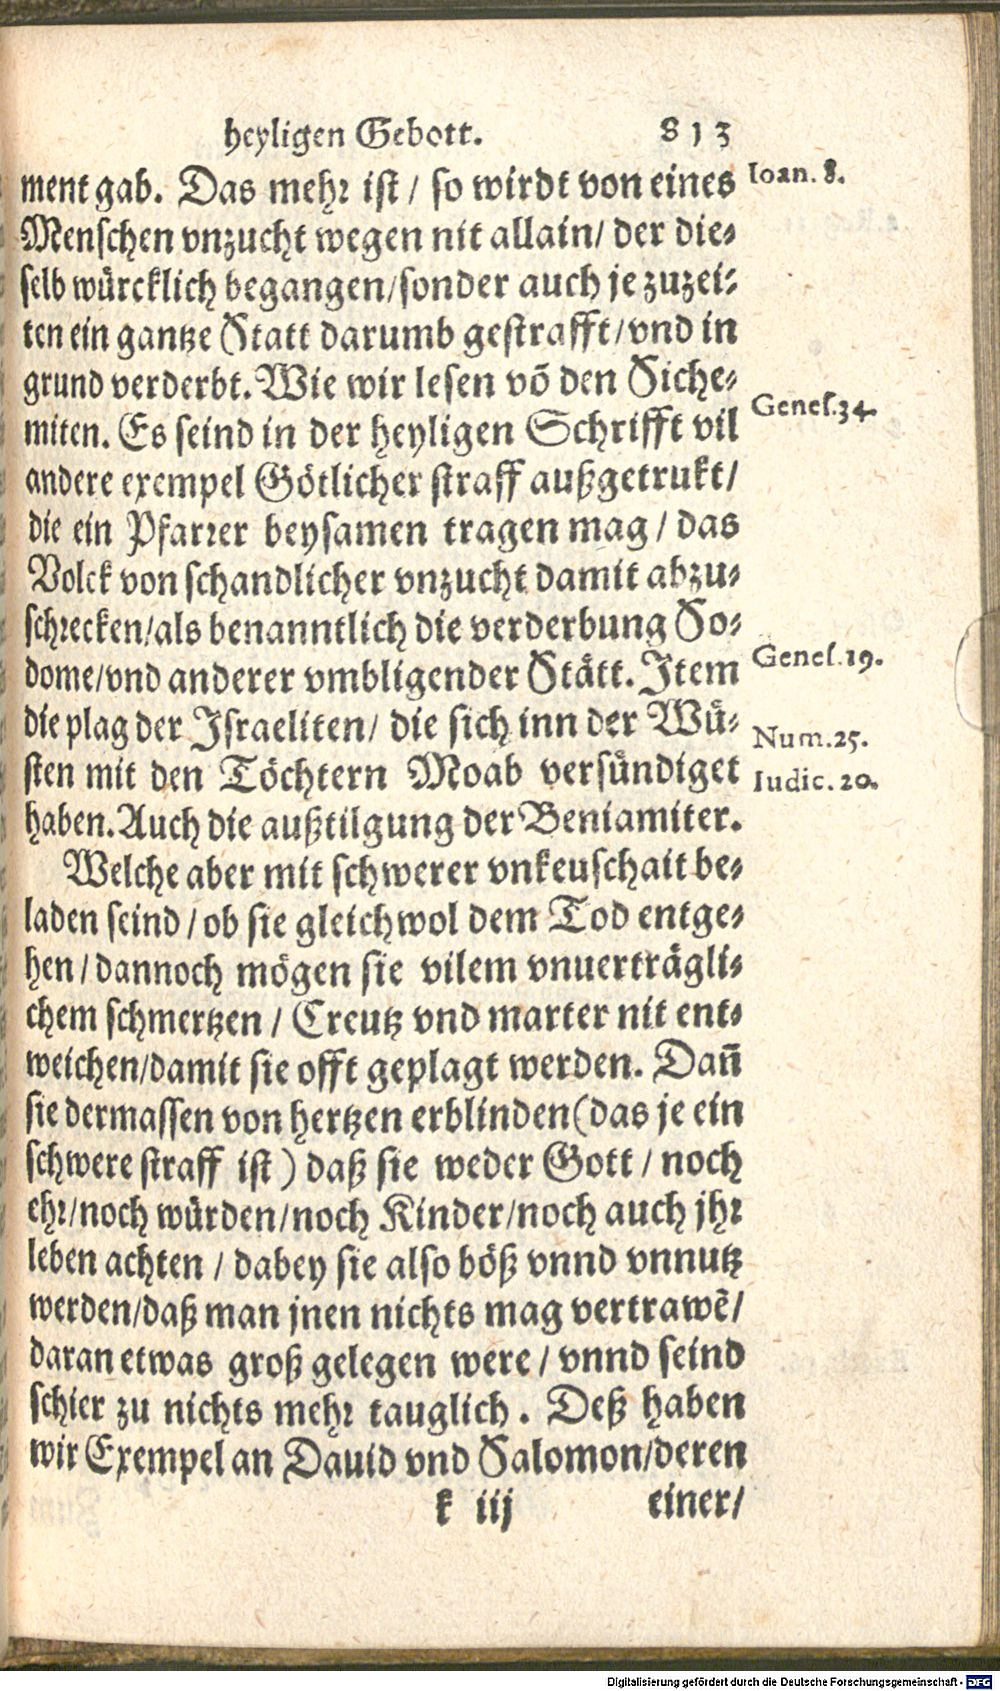 heyligen Gebott. 813
ment gab. Das mehr ist / so wirdt von eines
Ioan. 8.
Menschen vnzucht wegen nit allain / der die-
selb würcklich begangen / sonder auch je zuzei-
ten ein gantze Statt darumb gestrafft / vnd in
grund verderbt. Wie wir lesen võ den Siche-
Genes. 34.
miten. Es seind in der heyligen Schrifft vil
andere exempel Götlicher straff außgetrukt /
die ein Pfarrer beysamen tragen mag / das
Volck von schandlicher vnzucht damit abzu-
schrecken / als benanntlich die verderbung So-
Genes. 19.
dome / vnd anderer vmbligender Stätt. Item
die plag der Israeliten / die sich inn der Wü-
Num. 25.
sten mit den Töchtern Moab versündiget
Iudic. 20.
haben. Auch die außtilgung der Beniamiter.
Welche aber mit schwerer vnkeuschait be-
laden seind / ob sie gleichwol dem Tod entge-
hen / dannoch mögen sie vilem vnuerträgli-
chem schmertzen / Creutz vnd marter nit ent-
weichen / damit sie offt geplagt werden. Dañ
sie dermassen von hertzen erblinden (das je ein
schwere straff ist) daß sie weder Gott / noch
ehr / noch würden / noch Kinder / noch auch jhr
leben achten / dabey sie also böß vnnd vnnutz
werden / daß man jnen nichts mag vertrawẽ /
daran etwas groß gelegen were / vnnd seind
schier zu nichts mehr tauglich. Deß haben
wir Exempel an Dauid vnd Salomon / deren
k iij einer /
Digitalisierung gefördert durch die Deutsche Forschungsgemeinschaft - DFG